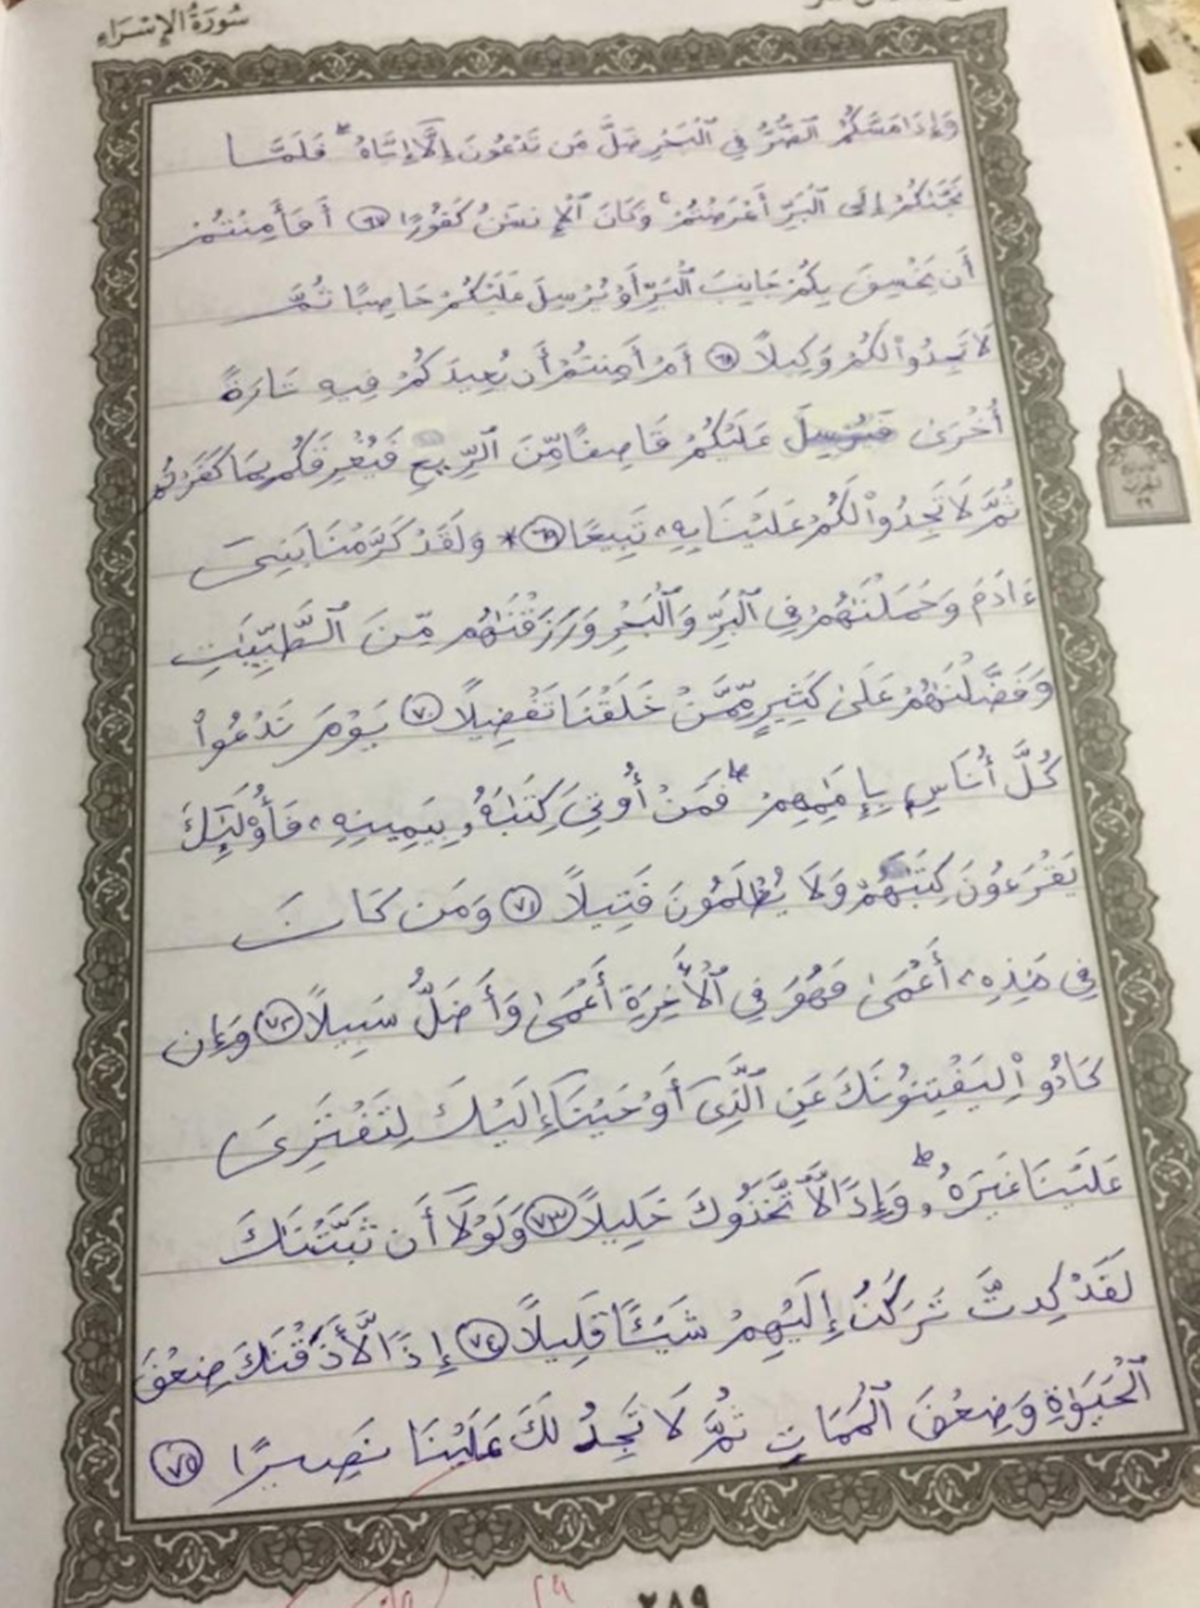 سُورَةُ الإِسْرَاءِ
وَإِذَا مَسَّكُمُ ٱلضُّرُّ فِي ٱلْبَحْرِ ضَلَّ مَن تَدْعُونَ إِلَّآ إِيَّاهُ ۖ فَلَمَّا
نَجَّىٰكُمْ إِلَى ٱلْبَرِّ أَعْرَضْتُمْ ۚ وَكَانَ ٱلْإِنسَٰنُ كَفُورًا ٦٧ أَفَأَمِنتُمْ
أَن يَخْسِفَ بِكُمْ جَانِبَ ٱلْبَرِّ أَوْ يُرْسِلَ عَلَيْكُمْ حَاصِبًا ثُمَّ
لَا تَجِدُوا۟ لَكُمْ وَكِيلًا ٦٨ أَمْ أَمِنتُمْ أَن يُعِيدَكُمْ فِيهِ تَارَةً
أُخْرَىٰ فَيُرْسِلَ عَلَيْكُمْ قَاصِفًا مِّنَ ٱلرِّيحِ فَيُغْرِقَكُم بِمَا كَفَرْتُمْ
ثُمَّ لَا تَجِدُوا۟ لَكُمْ عَلَيْنَا بِهِۦ تَبِيعًا ٦٩ * وَلَقَدْ كَرَّمْنَا بَنِىٓ
ءَادَمَ وَحَمَلْنَٰهُمْ فِي ٱلْبَرِّ وَٱلْبَحْرِ وَرَزَقْنَٰهُم مِّنَ ٱلطَّيِّبَٰتِ
وَفَضَّلْنَٰهُمْ عَلَىٰ كَثِيرٍ مِّمَّنْ خَلَقْنَا تَفْضِيلًا ٧٠ يَوْمَ نَدْعُوا۟
كُلَّ أُنَاسٍ بِإِمَٰمِهِمْ ۖ فَمَنْ أُوتِيَ كِتَٰبَهُۥ بِيَمِينِهِۦ فَأُو۟لَٰٓئِكَ
يَقْرَءُونَ كِتَٰبَهُمْ وَلَا يُظْلَمُونَ فَتِيلًا ٧١ وَمَن كَانَ
فِي هَٰذِهِۦٓ أَعْمَىٰ فَهُوَ فِي ٱلْأَخِرَةِ أَعْمَىٰ وَأَضَلُّ سَبِيلًا ٧٢ وَإِن
كَادُوا۟ لَيَفْتِنُونَكَ عَنِ ٱلَّذِىٓ أَوْحَيْنَآ إِلَيْكَ لِتَفْتَرِىَ
عَلَيْنَا غَيْرَهُۥ ۖ وَإِذًا لَّٱتَّخَذُوكَ خَلِيلًا ٧٣ وَلَوْلَآ أَن ثَبَّتْنَٰكَ
لَقَدْ كِدتَّ تَرْكَنُ إِلَيْهِمْ شَيْـًٔا قَلِيلًا ٧٤ إِذًا لَّأَذَقْنَٰكَ ضِعْفَ
ٱلْحَيَوٰةِ وَضِعْفَ ٱلْمَمَاتِ ثُمَّ لَا تَجِدُ لَكَ عَلَيْنَا نَصِيرًا ٧٥
٢٨٩